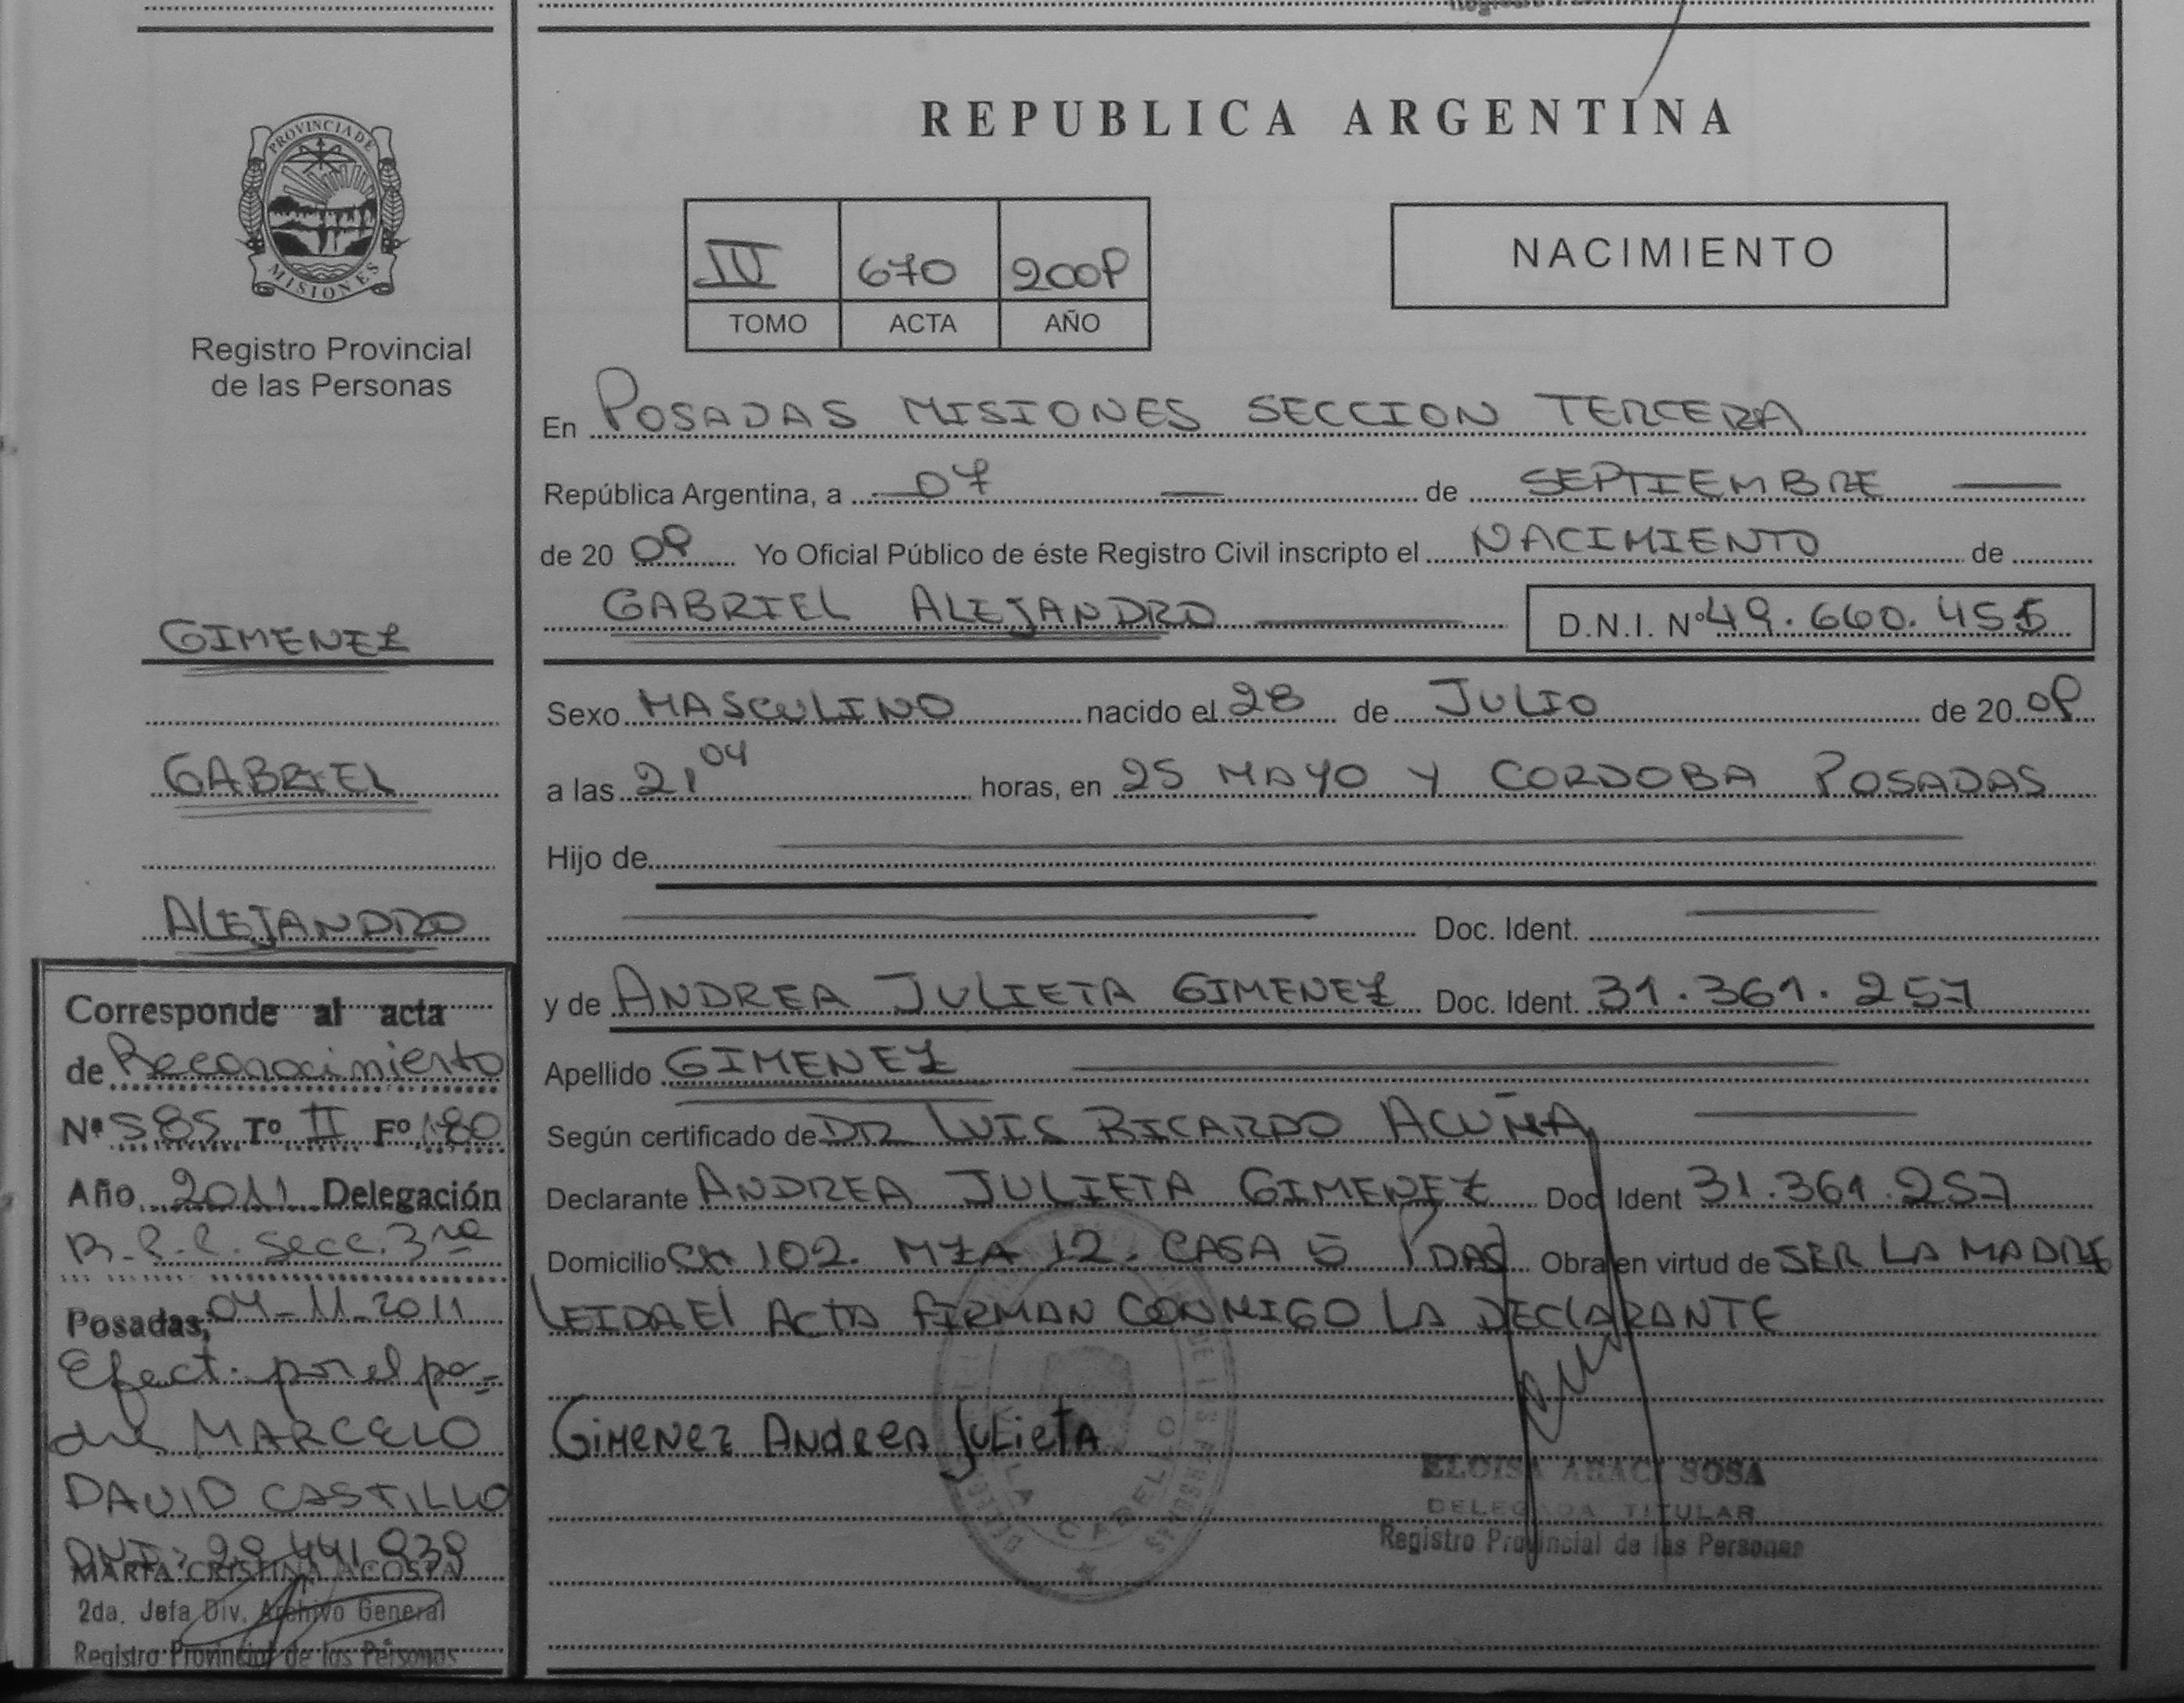 PROVINCIA DE
MISIONES
Registro Provincial
de las Personas
GIMENEZ
GABRIEL
ALEJANDRO
Corresponde al acta
de Reconocimiento
Nº 585 Tº II Fº 180
Año 2011 Delegación
R.P.P. Secc. 3ra
Posadas, 04-11-2011
Efect. por el pa-
dre MARCELO
DAVID CASTILLO
DNI: 29.441.939
MARIA CRISTINA ACOSTA
2da. Jefa Div. Archivo General
Registro Provincial de las Personas
REPUBLICA ARGENTINA
IV 670 2009
TOMO ACTA AÑO
NACIMIENTO
En POSADAS MISIONES SECCION TERCERA
República Argentina, a 07 de SEPTIEMBRE
de 20 09 Yo Oficial Público de éste Registro Civil inscripto el NACIMIENTO de
GABRIEL ALEJANDRO D.N.I. Nº 49.660.455
Sexo MASCULINO nacido el 28 de JULIO de 20 09
a las 21 04 horas, en 25 MAYO Y CORDOBA POSADAS
Hijo de
Doc. Ident.
y de ANDREA JULIETA GIMENEZ Doc. Ident. 31.361.257
Apellido GIMENEZ
Según certificado de DR LUIS RICARDO ACUÑA
Declarante ANDREA JULIETA GIMENEZ Doc Ident 31.361.257
Domicilio CH 102. MZA 12. CASA 5 PDAS Obra en virtud de SER LA MADRE
LEIDA El ACTA FIRMAN CONMIGO LA DEClARANTE
GiMENEZ ANDREA JULIETA
ELOISA ARACI SOSA
DELEGADA TITULAR
Registro Provincial de las Personas